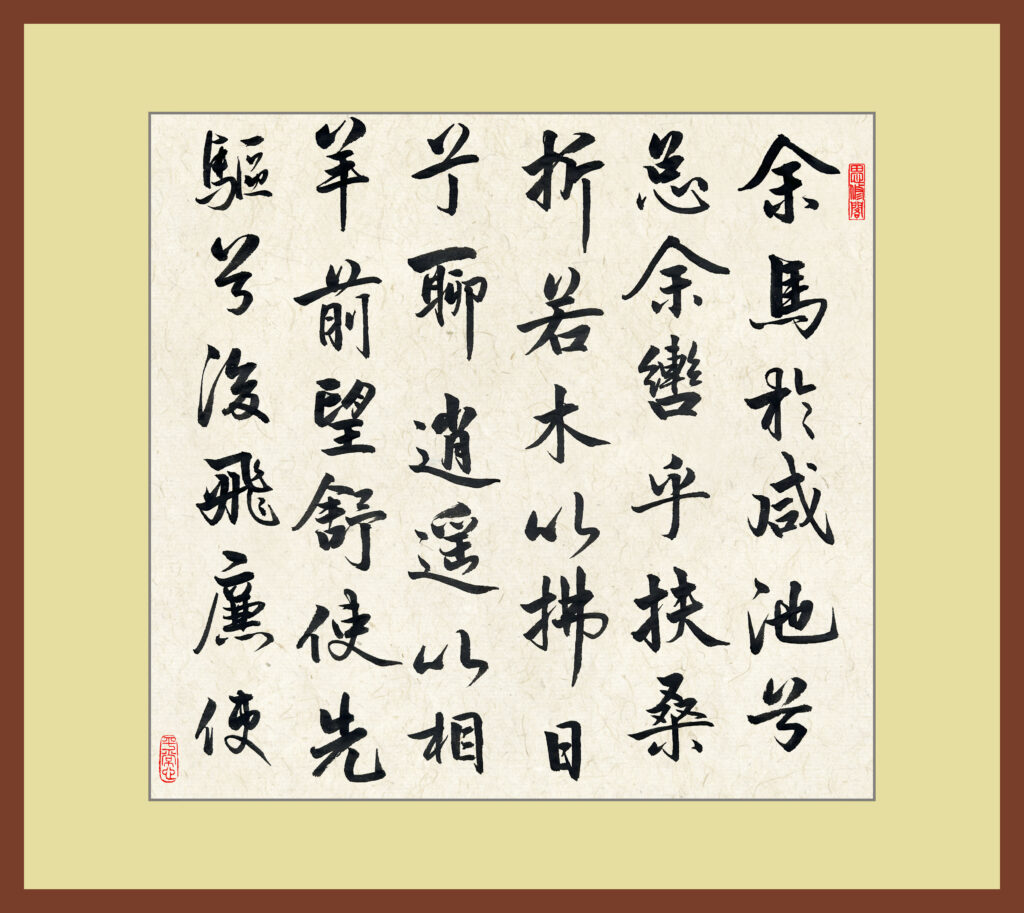 思修閣
余馬於咸池兮
总余轡乎扶桑
折若木以拂日
兮聊逍遥以相
羊前望舒使先
驅兮後飛廉使
平常心